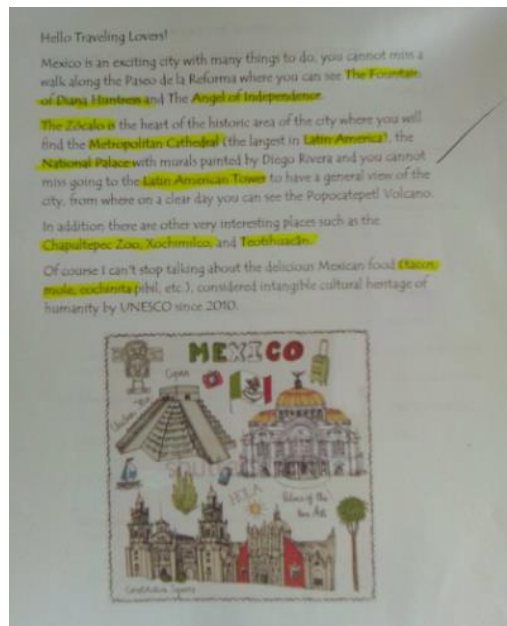 Hello Traveling Lovers!
Mexico is an exciting city with many things to do, you cannot miss a
walk along the Paseo de la Reforma where you can see The Fountain
of Diana Huntress and The Angel of Independence.
The Zócalo is the heart of the historic area of the city where you will
find the Metropolitan Cathedral (the largest in Latin America), the
National Palace with murals painted by Diego Rivera and you cannot
miss going to the Latin American Tower to have a general view of the
city, from where on a clear day you can see the Popocatepetl Volcano.
In addition there are other very interesting places such as the
Chapultepec Zoo, Xochimilco, and Teotihuacán.
Of course I can't stop talking about the delicious Mexican food (tacos,
mole, cochinita pibil, etc.), considered intangible cultural heritage of
humanity by UNESCO since 2010.
MEXICO
Chichen
HOLA
Palace of the
Fine Arts
Constitution Square